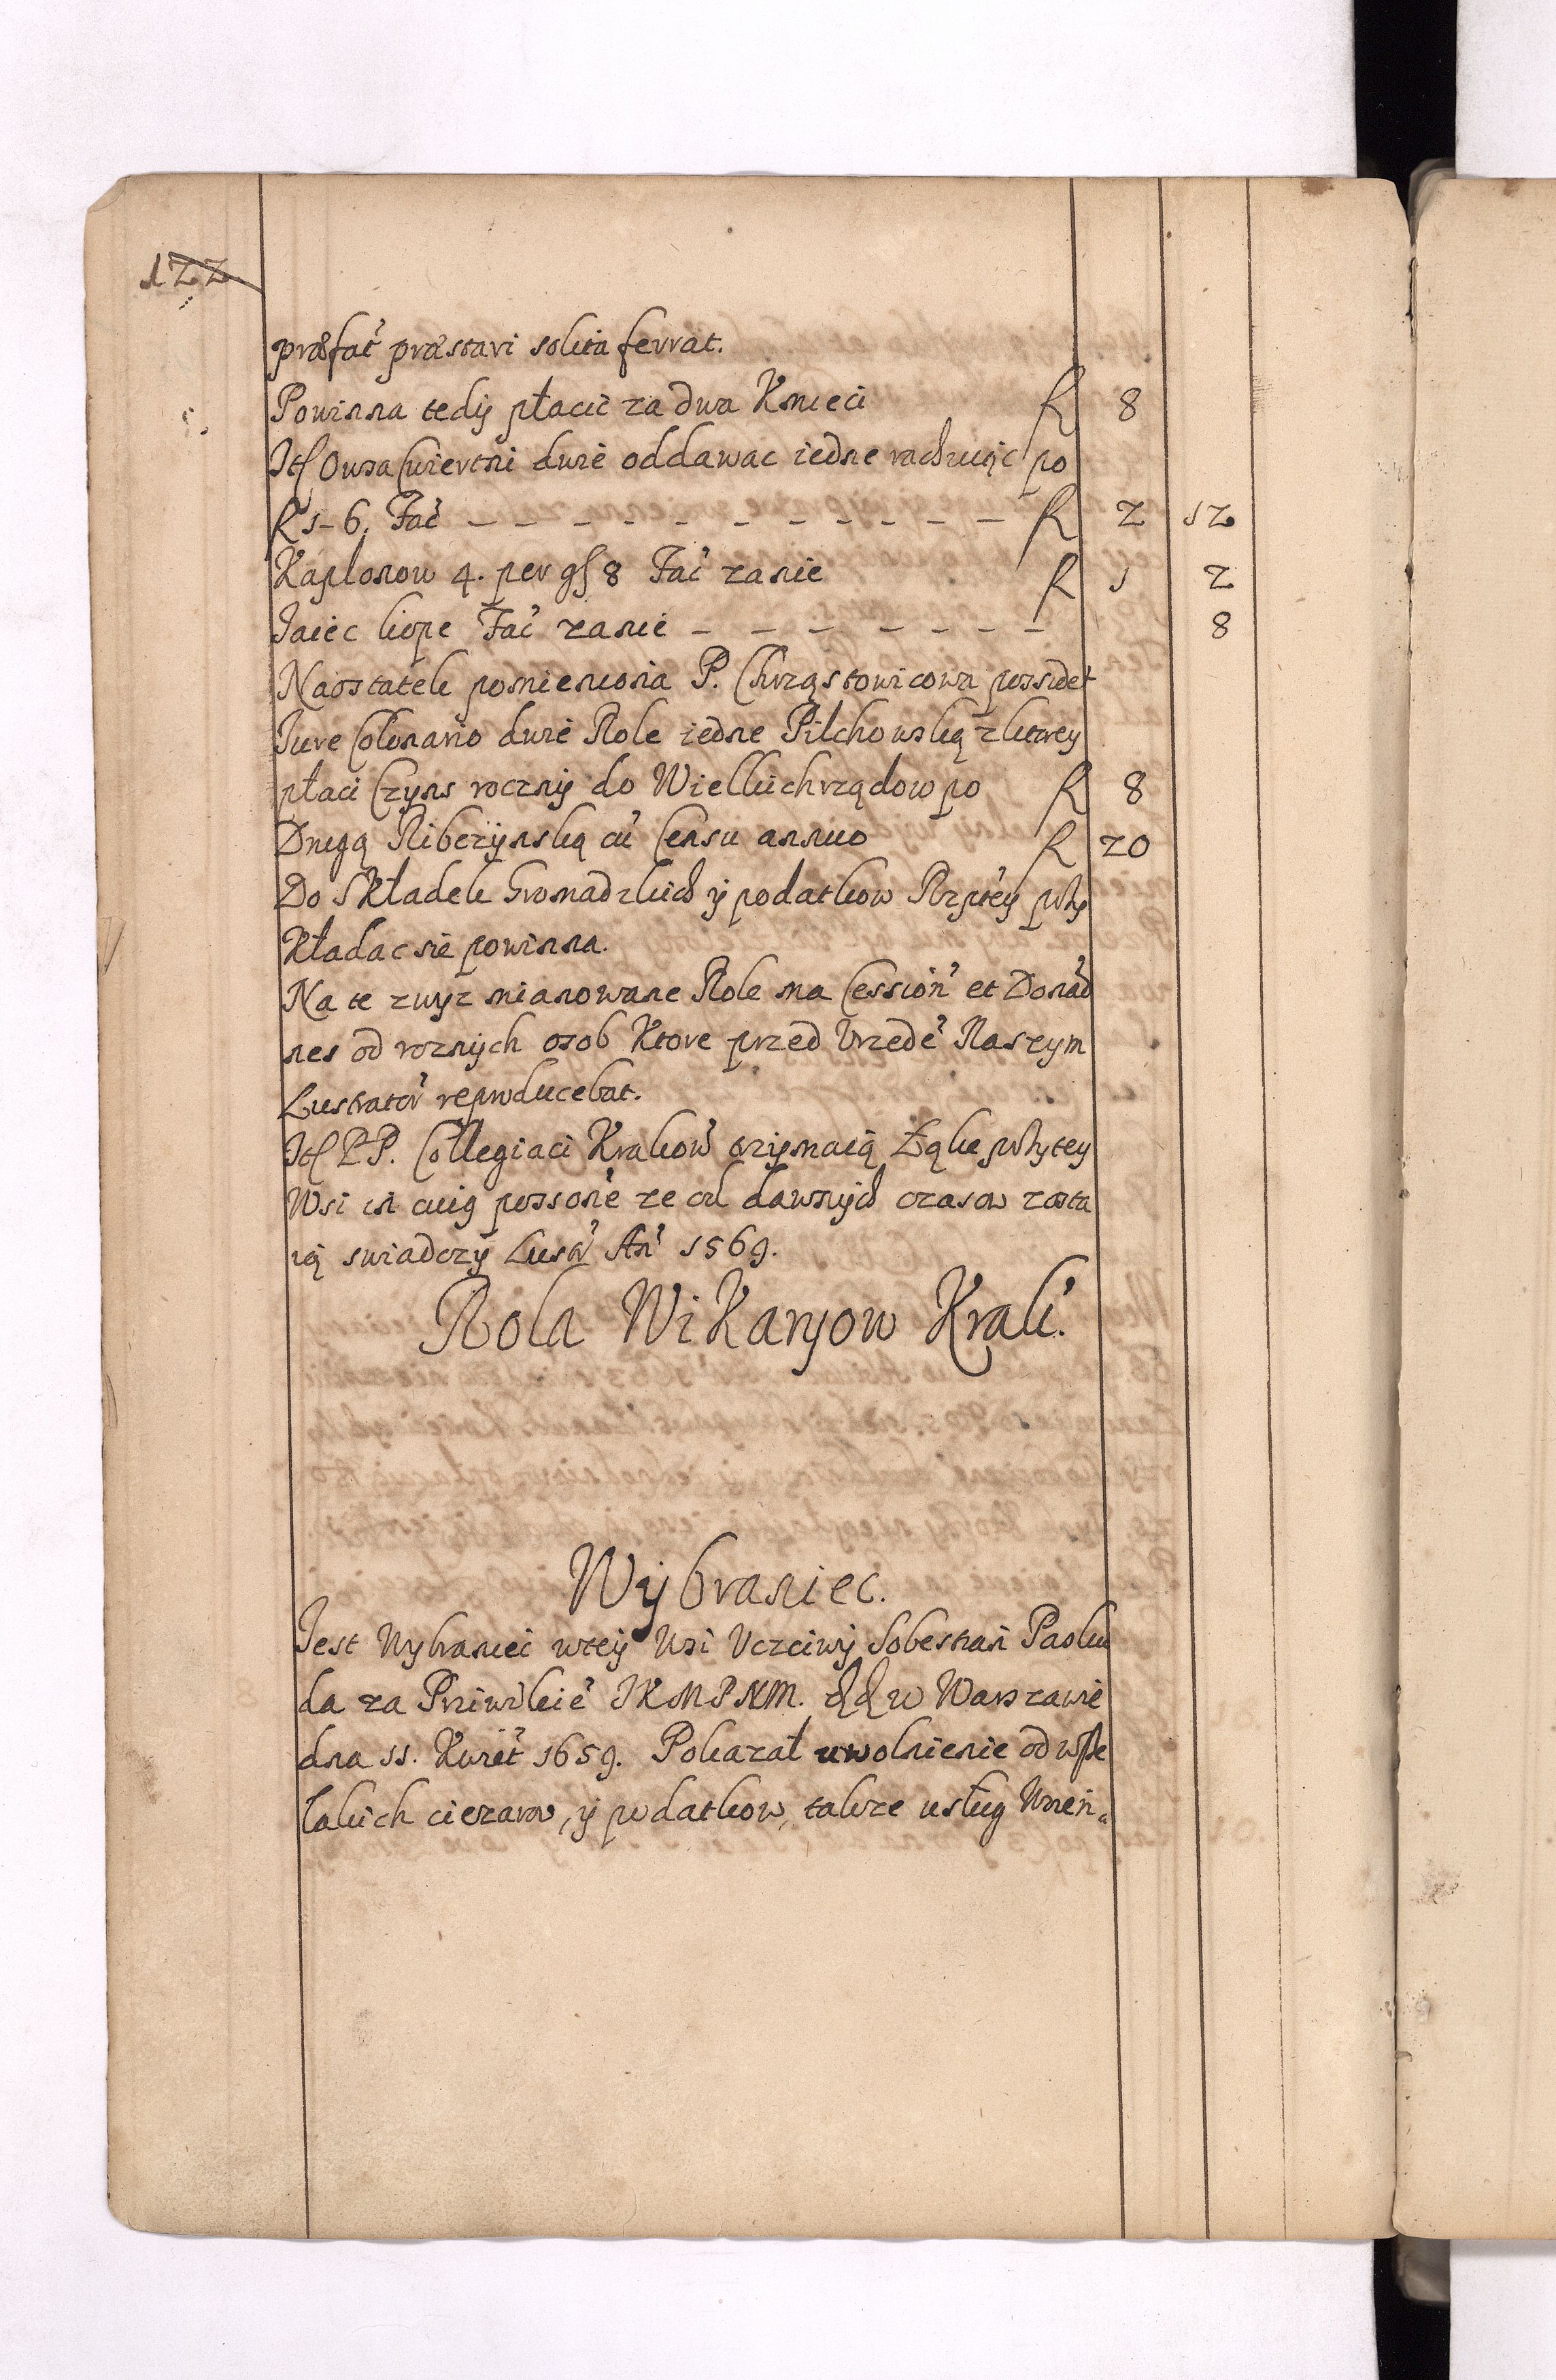 122
præfat' præstari solita ferrat.
Powinna tedÿ płacić za dwa Kmieci f 8
Itf Owsa Cwiertni dwie oddawac iedne rachuiąc po
f 1-6. Fać — — — — — — — — — — — f 2 12
Kapłonow 4. per gf 8 Fać zanie f 1 2
Jaiec kopę Fać zanie — — — — — — — 8
Naostatek pomieniona P. Chrząstowicowa possidet
Jure Colonario dwie Role iedne Pilchowską z ktorey
płaci Czyns rocznÿ do Wielkichrządow po f 8
Drugą Ribezÿnską cū Censu annuo f 20
Do Składek Gromadzkich ÿ podatkow Rzptey przy
kładac sie powinna.
Na te zwyz mianowane Role ma Cession' et Donad
nes od roznÿch osob Ktore przed Vrzedē Naszym
Lustrator' reproducebat.
Itf PP. Collegiaci Krakow' trzÿmaią Łąkę przy tey
Wsi in cuig possone ze od dawnÿch czasow zosta
ią swiadczÿ Lustr' An' 1569.
Rola WiKaryow Krak'.
Wÿbraniec.
Jest Wybraniec wteÿ Wsi Vczciwÿ Sobestian Paolu
da za Priwileie' JKMPNM. dd w Warszawie
dna 11. Kwiet' 1659. Pokazał uwolnienie od wße
lakich ciezarow, ÿ podatkow, takze usług Wnen„